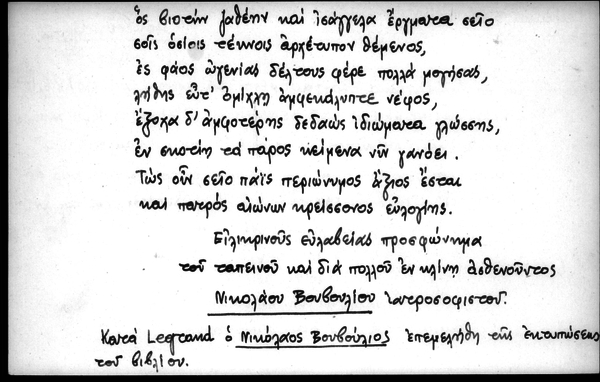 ὃς βιοτὴν ζαθέην καὶ ἰσάγγελα ἔργματα σεῖο
σοῖς ὁσίοις τέκνοις ἀρχέτυπον θέμενος,
ἐς φάος ὠγενίας δέλτους φέρε πολλὰ μογήσας,
λήθης εὖτ' ὀμίχλη ἀμφεκάλυπτε νέφος,
ἔξοχα δ' ἀμφοτέρης δεδαὼς ἰδιώματα γλώσσης,
ἐν σκοτίῃ τὰ πάρος κείμενα νῦν γανόει.
Τὼς οὖν σεῖο πάϊς περιώνυμος ἄξιος ἔσται
καὶ πατρὸς αἰώνων κρείσσονος εὐλογίης.
Εἰλικρινοῦς εὐλαβείας προσφώνημα
τοῦ ταπεινοῦ καὶ διὰ πολλοῦ ἐν κλίνῃ ἀσθενοῦντος
Νικολάου Βουβουλίου ἰατροσοφιστοῦ.
Κατὰ Legrand ὁ Νικόλαος Βουβούλιος ἐπεμελήθη τῆς ἐκτυπώσεως
τοῦ βιβλίου.